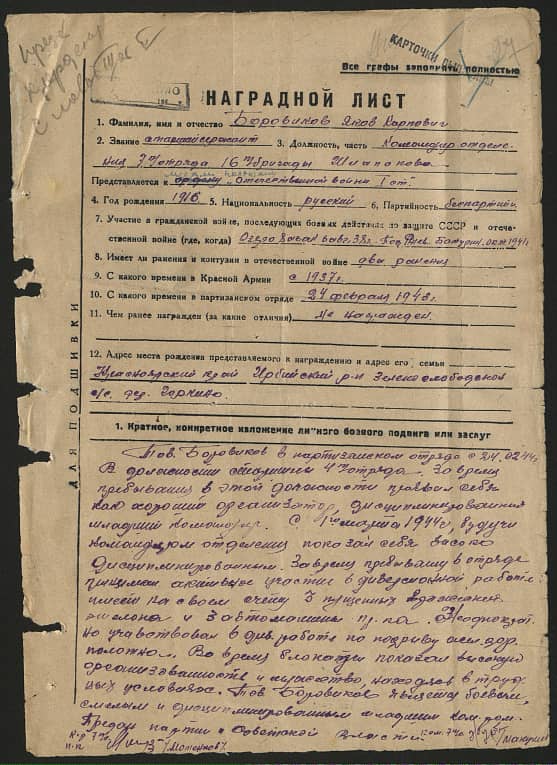 КАРТОЧКИ
Все графы заполнять полностью
НАГРАДНОЙ ЛИСТ
1. Фамилия, имя и отчество Боровиков Яков Карпович
2. Звание старший сержант 3. Должность, часть Командир отделе-
ния 3го отряда 16й бригады
Представляется к ордену Отечественной войны I ст.
4. Год рождения 1916 5. Национальность русский 6. Партийность беспартийн.
7. Участие в гражданской войне, последующих боевых действиях по защите СССР и отече-
ственной войне (где, когда) Озеро Хасан 6 авг. 38 г. 1941 г
8. Имеет ли ранения и контузии в отечественной войне два ранения
9. С какого времени в Красной Армии с 1937 г.
10. С какого времени в партизанском отряде 24 февраля 1943 г.
11. Чем ранее награжден (за какие отличия) не награжден.
12. Адрес места рождения представляемого к награждению и адрес его семьи
Красноярский край р-н
с/с. дер. Горкино.
ДЛЯ ПОДШИВКИ
1. Краткое, конкретное изложение личного боевого подвига или заслуг
Тов. Боровиков в партизанском отряде с 24.02.44,
В должности 4го отряда. За время
пребывания в этой должности проявил себя
как хороший организатор, дисциплинированный
младший командир. С марта 1944 г, будучи
командиром отделения показал себя высоко
дисциплинированным. За время пребывания в отряде
принимал активное участие в диверсионной работе:
имеет на своем счету 3 пущенных
эшелона и 3 автомашины пр-ка. Неоднократ-
но участвовал в див. работе по подрыву жел. дор.
полотна. Во время блокады показал высокую
организованность и мужество, находясь в труд-
ных условиях. Тов Боровиков является боевым,
смелым и дисциплинированным младшим ком-ром.
Предан партии и советской власти.